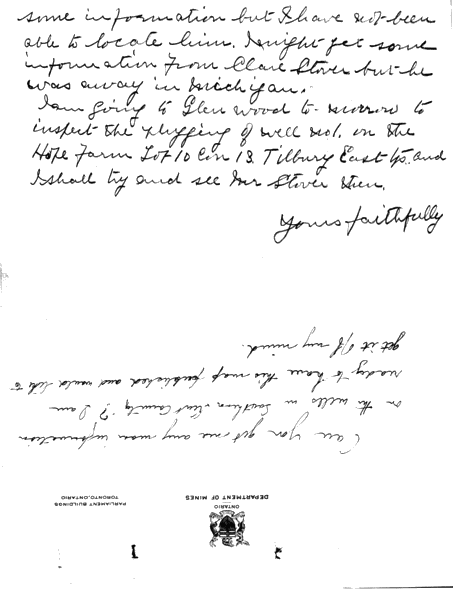 some information but I have not been
able to locate him. I might get some
information from Clare Stover but he
was away in Michigan.
I am going to Glenwood to-morrow to
inspect the plugging of well No1. on the
Hope Farm Lot 10 Con 13 Tilbury East Tp. and
I shall try and see Mr Stover then.
Yours faithfully
PARLIAMENT BUILDINGS
TORONTO, ONTARIO
ONTARIO
DEPARTMENT OF MINES
Can you get me any more information
on the wells in Southern Kent County? I am
ready to have this map published and would like to
get it off my mind.